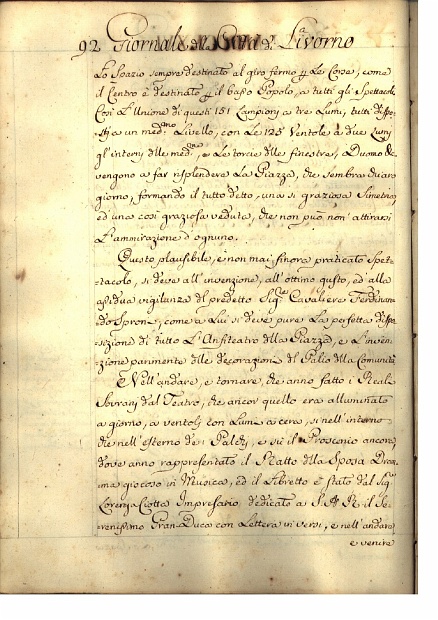 92 Giornale di Livorno
Lo spazio sempre destinato al giro fermo p le Cose, come
il Centro è destinato p il basso Popolo, a tutti gli Spettacoli
Così L'Unione di questi 151 Lampioni a tre Lumi, tutti dispo-
sti a un med.mo Livello, con Le 125 Ventole a due Lumi
gl'interni delle med.me, e Le torcie delle finestre, Duomo
vengono a far risplendere La Piazza, che sembra chiaro
giorno, formando il tutto detto, una sì graziosa Simetria
ed una così graziosa veduta, che non può non' attirarsi
L'ammirazione d'ognuno.
Questo plausibile, e non mai finora praticato Spet-
tacolo, si deve all'invenzione, all'ottimo gusto, ed alla
assidua vigilanza del predetto Sig.re Cavaliere Ferdinan-
do Sproni, come a Lui si deve pure La perfetta dispo-
sizione di tutto L'Anfiteatro della Piazza, e L'inven-
zione parimente delle decorazioni del Palio della Comunità
Nell'andare, e tornare, che anno fatto i Reali
Sovrani dal Teatro, che ancor quello era alluminato
a giorno, a ventole con Lumi a cera, sì nell'interno
che nell'esterno de' Palchi, e sì il Proscenio ancora
dove anno rappresentato il Ratto della Sposa Dram-
ma giocoso in Musica, ed il Libretto è stato dal Sig.
Lorenzo Impresario dedicato a S.A.R. il Se-
renissimo Gran Duca con Lettera in versi, e nell'andare
e venire